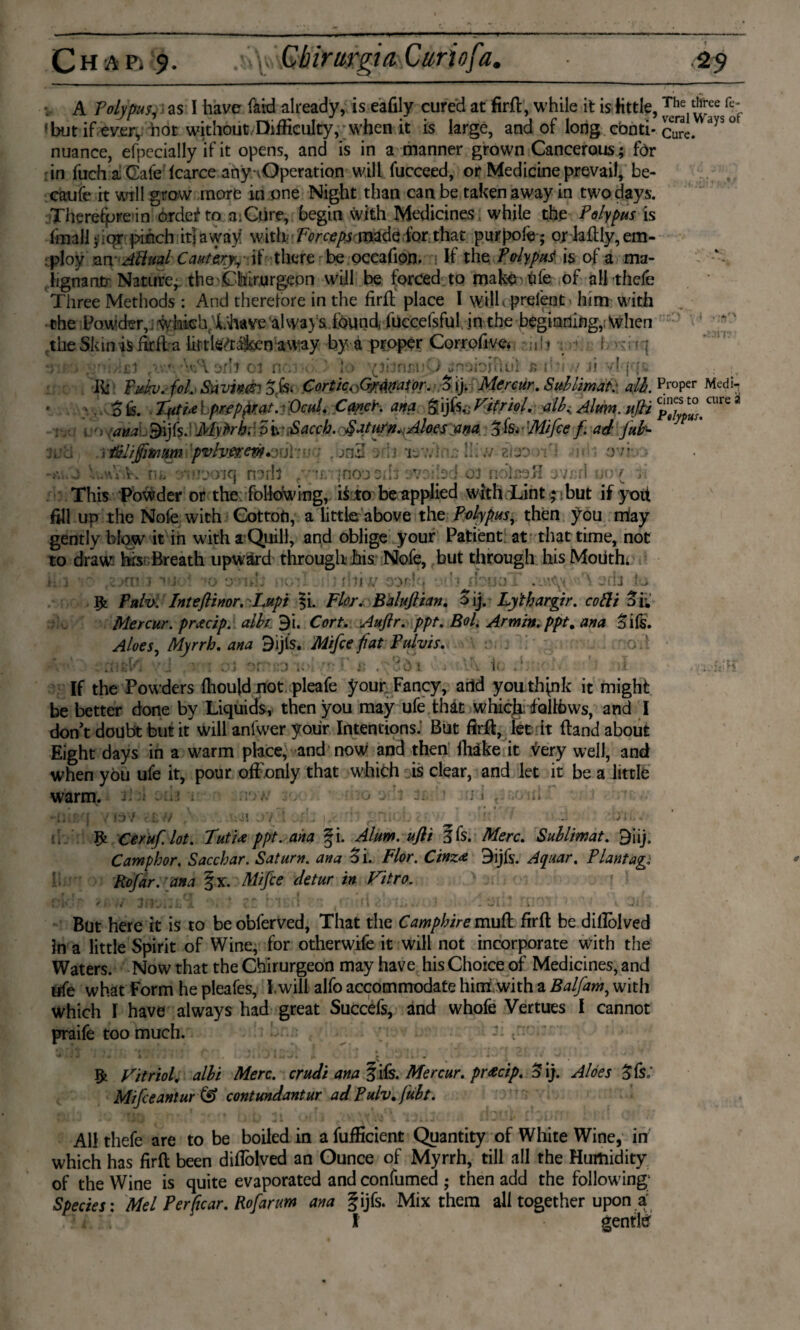 Chap. 9. Chirurgia Curioſa. 29
A Polypus, as I have ſaid already, is eaſily cured at firſt, while it is little,
but if ever, not without Difficulty, when it is large, and of long conti-
nuance, eſpecially if it opens, and is in a manner grown Cancerous; for
in ſuch a Caſe ſcarce any Operation will ſucceed, or Medicine prevail, be-
cauſe it will grow more in one Night than can be taken away in two days.
Therefore in order to a Cure, begin with Medicines while the Polypus is
ſmall; or pinch it away with Forceps made for that purpoſe; or laſtly, em-
ploy an Actual Cautery, if there be occaſion. If the Polypus is of a ma-
lignant Nature, the Chirurgeon will be forced to make uſe of all theſe
Three Methods: And therefore in the firſt place I will preſent him with
the Powder, which I have always found ſucceſsful in the beginning, when
the Skin is firſt a little taken away by a proper Corroſive.
The three ſe-
veral Ways of
Cure.
℞ Pulv. fol. Savinæ ʒſs. Cortic. Granator. ʒij. Mercur. Sublimat. alb.
ʒſs. Tutiæ præparat. Ocul. Cancr. ana ʒijſs. Vitriol. alb. Alum. uſti
ana ℈ijſs. Myrrh. ʒi. Sacch. Saturn. Aloes ana ʒſs. Miſce f. ad ſub-
tiliſſimum pulverem.
Proper Medi-
cines to cure a
Polypus.
This Powder or the following, is to be applied with Lint; but if you
fill up the Noſe with Cotton, a little above the Polypus, then you may
gently blow it in with a Quill, and oblige your Patient at that time, not
to draw his Breath upward through his Noſe, but through his Mouth.
℞ Pulv. Inteſtinor. Lupi ℥i. Flor. Baluſtian. ʒij. Lythargir. cocti ʒi.
Mercur. præcip. albi ℈i. Cort. Auſtr. ppt. Bol. Armin. ppt. ana ʒiſs.
Aloes, Myrrh. ana ℈ijſs. Miſce fiat Pulvis.
If the Powders ſhould not pleaſe your Fancy, and you think it might
be better done by Liquids, then you may uſe that which follows, and I
don't doubt but it will anſwer your Intentions. But firſt, let it ſtand about
Eight days in a warm place, and now and then ſhake it very well, and
when you uſe it, pour off only that which is clear, and let it be a little
warm.
℞ Ceruſ. lot. Tutiæ ppt. ana ℥i. Alum. uſti ℥ſs. Merc. Sublimat. ℈iij.
Camphor. Sacchar. Saturn. ana ʒi. Flor. Cinzæ ℈ijſs. Aquar. Plantag.
Roſar. ana ℥x. Miſce detur in Vitro.
But here it is to be obſerved, That the Camphire muſt firſt be diſſolved
in a little Spirit of Wine, for otherwiſe it will not incorporate with the
Waters. Now that the Chirurgeon may have his Choice of Medicines, and
uſe what Form he pleaſes, I will alſo accommodate him with a Balſam, with
which I have always had great Succeſs, and whoſe Vertues I cannot
praiſe too much.
℞ Vitriol. albi Merc. crudi ana ℥iſs. Mercur. præcip. ʒij. Aloes ʒſs.
Miſceantur & contundantur ad Pulv. ſubt.
All theſe are to be boiled in a ſufficient Quantity of White Wine, in
which has firſt been diſſolved an Ounce of Myrrh, till all the Humidity
of the Wine is quite evaporated and conſumed; then add the following
Species: Mel Perſicar. Roſarum ana ℥ijſs. Mix them all together upon a
I gentle